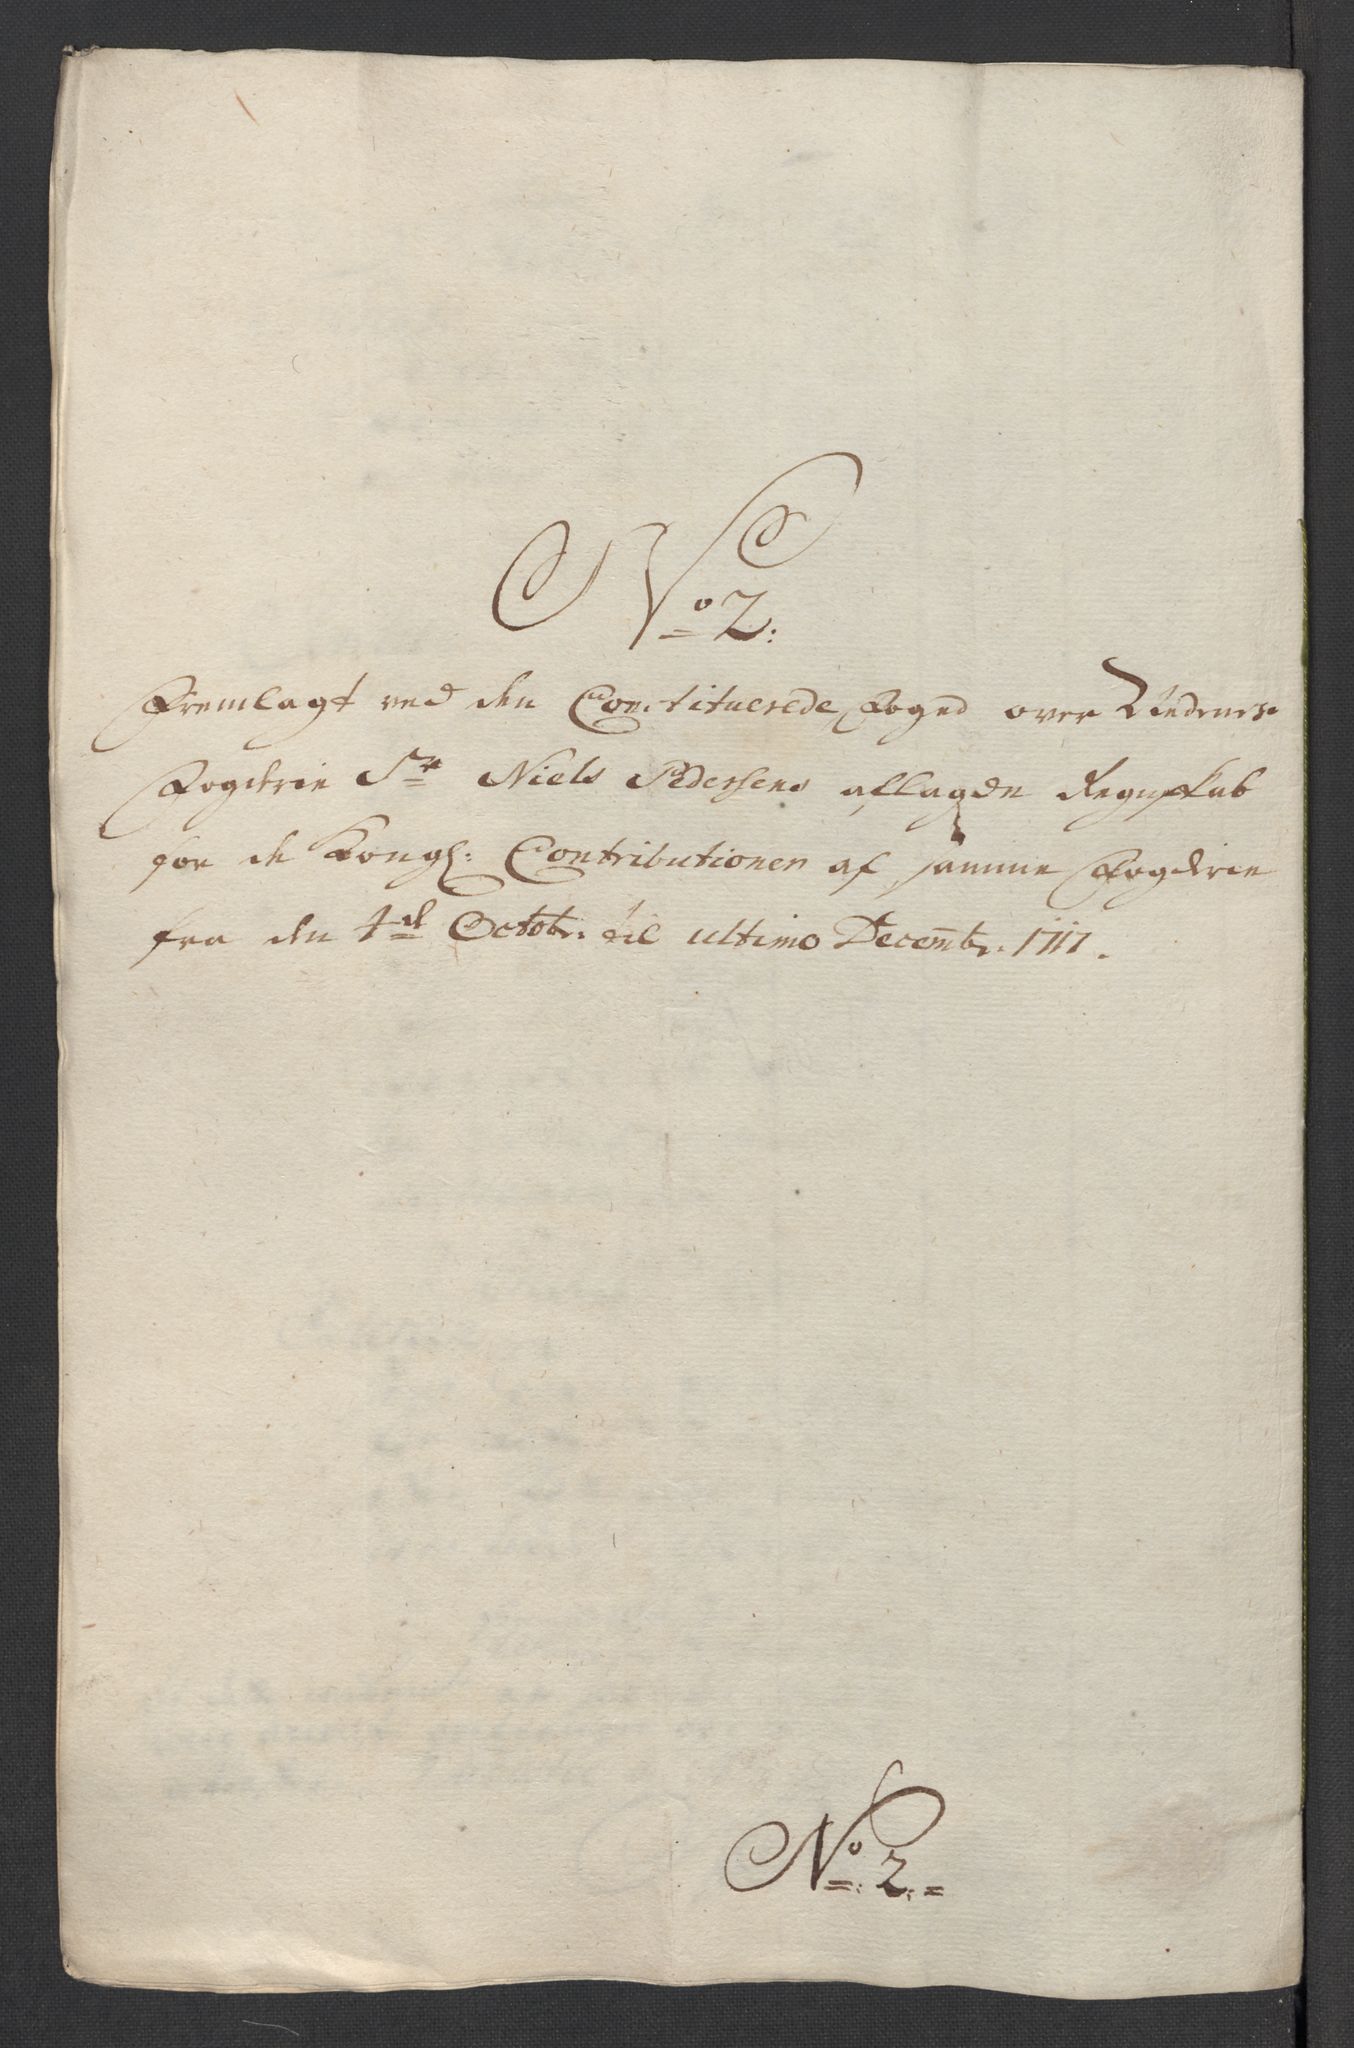 No 2:
Fremlagt ved den Constituerede Foged over Nedenes
Fogderie Sr Niels Pedersens aflagde Regnskab
for de Kongl: Contributioner af samme Fogderie
fra den 1de Octobr. til ultimo Decembr. 1717.
No: 2.=